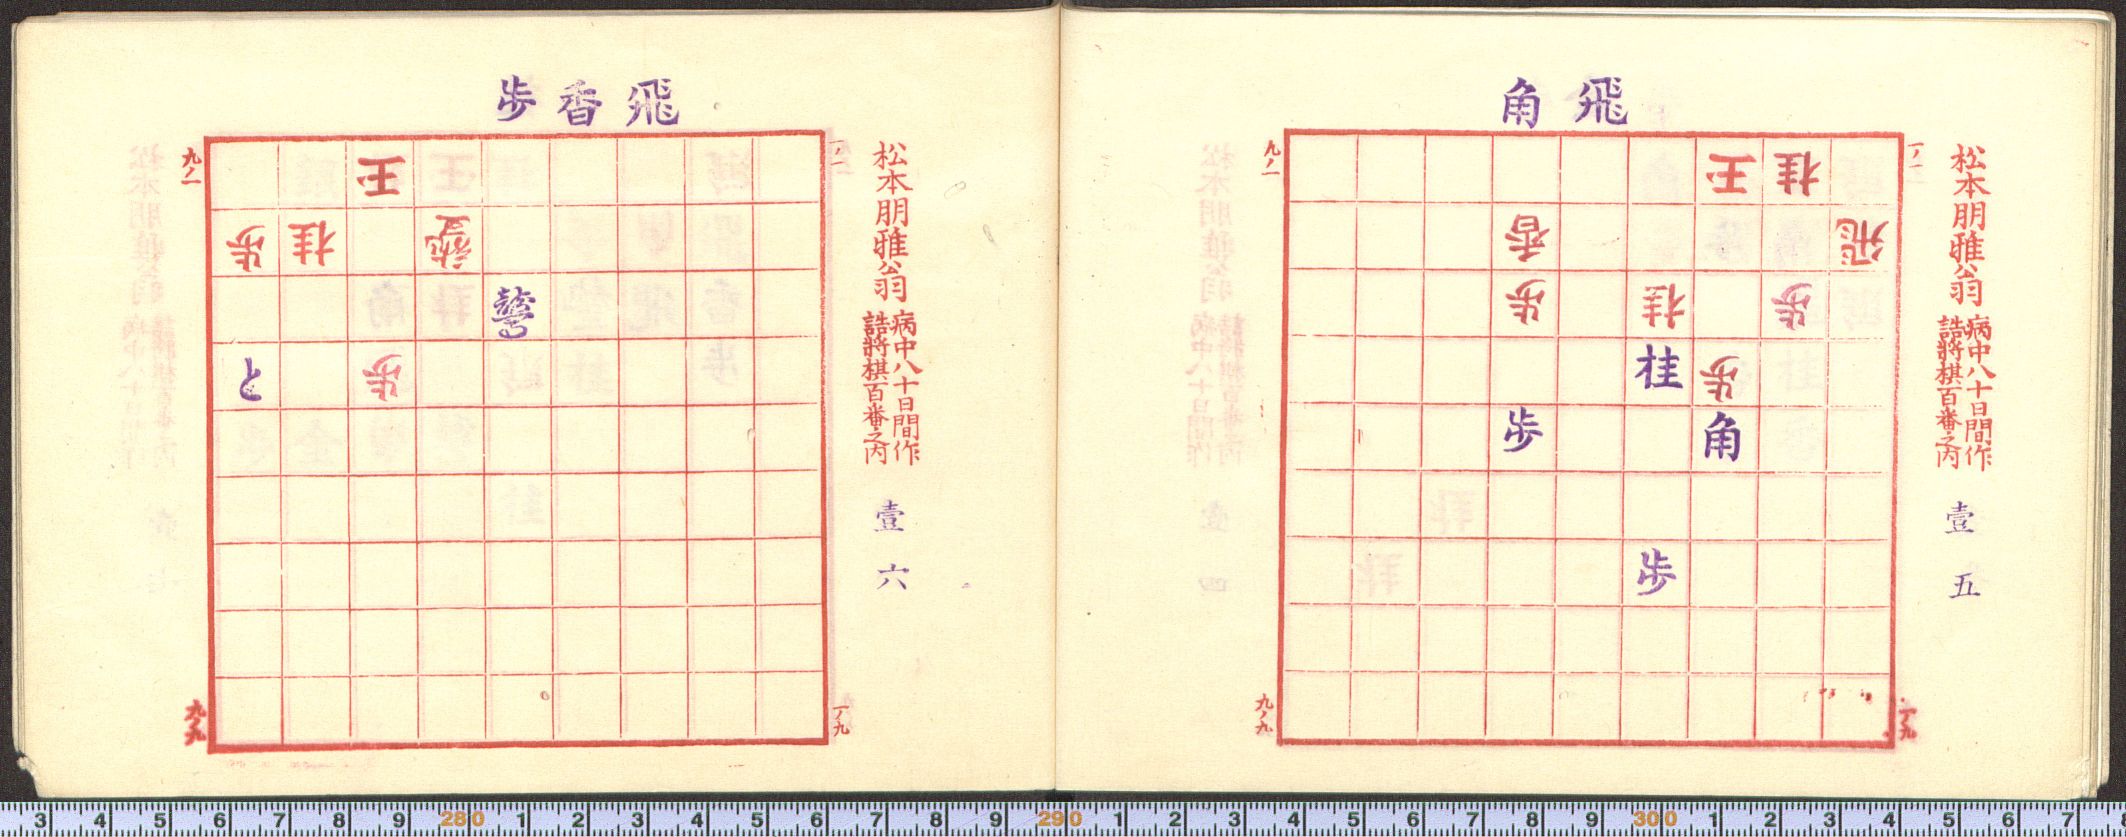 飛角
松本朋雅翁
病中八十日間作
詰將棋百番之内
壹五
一ノ一
九ノ一
王 桂
香 飛
歩 桂 歩
桂 歩
歩 角
歩
九ノ九
一ノ九
飛香歩
松本朋雅翁
病中八十日間作
詰將棋百番之内
壹六
一ノ一
九ノ一
王
歩 桂
と 歩
九ノ九
一ノ九
3 4 5 6 7 8 9 280 1 2 3 4 5 6 7 8 9 290 1 2 3 4 5 6 7 8 9 300 1 2 3 4 5 6 7